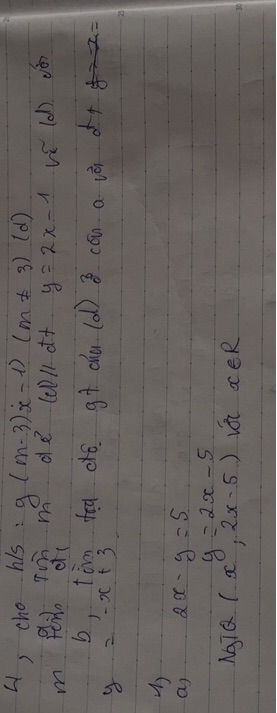 4, cho h/s : y (m-3)x-1) (m ≠ 3) (d)
a, Tìm m để (d) // dt y = 2x-1 vẽ (d)
m
b, Tìm toạ độ gđ của (d) ở câu a với dt y = x =
y = -x+3
1,
a, 2x - y = 5
y = 2x - 5
NgTQ (x ; 2x-5) với x∈R